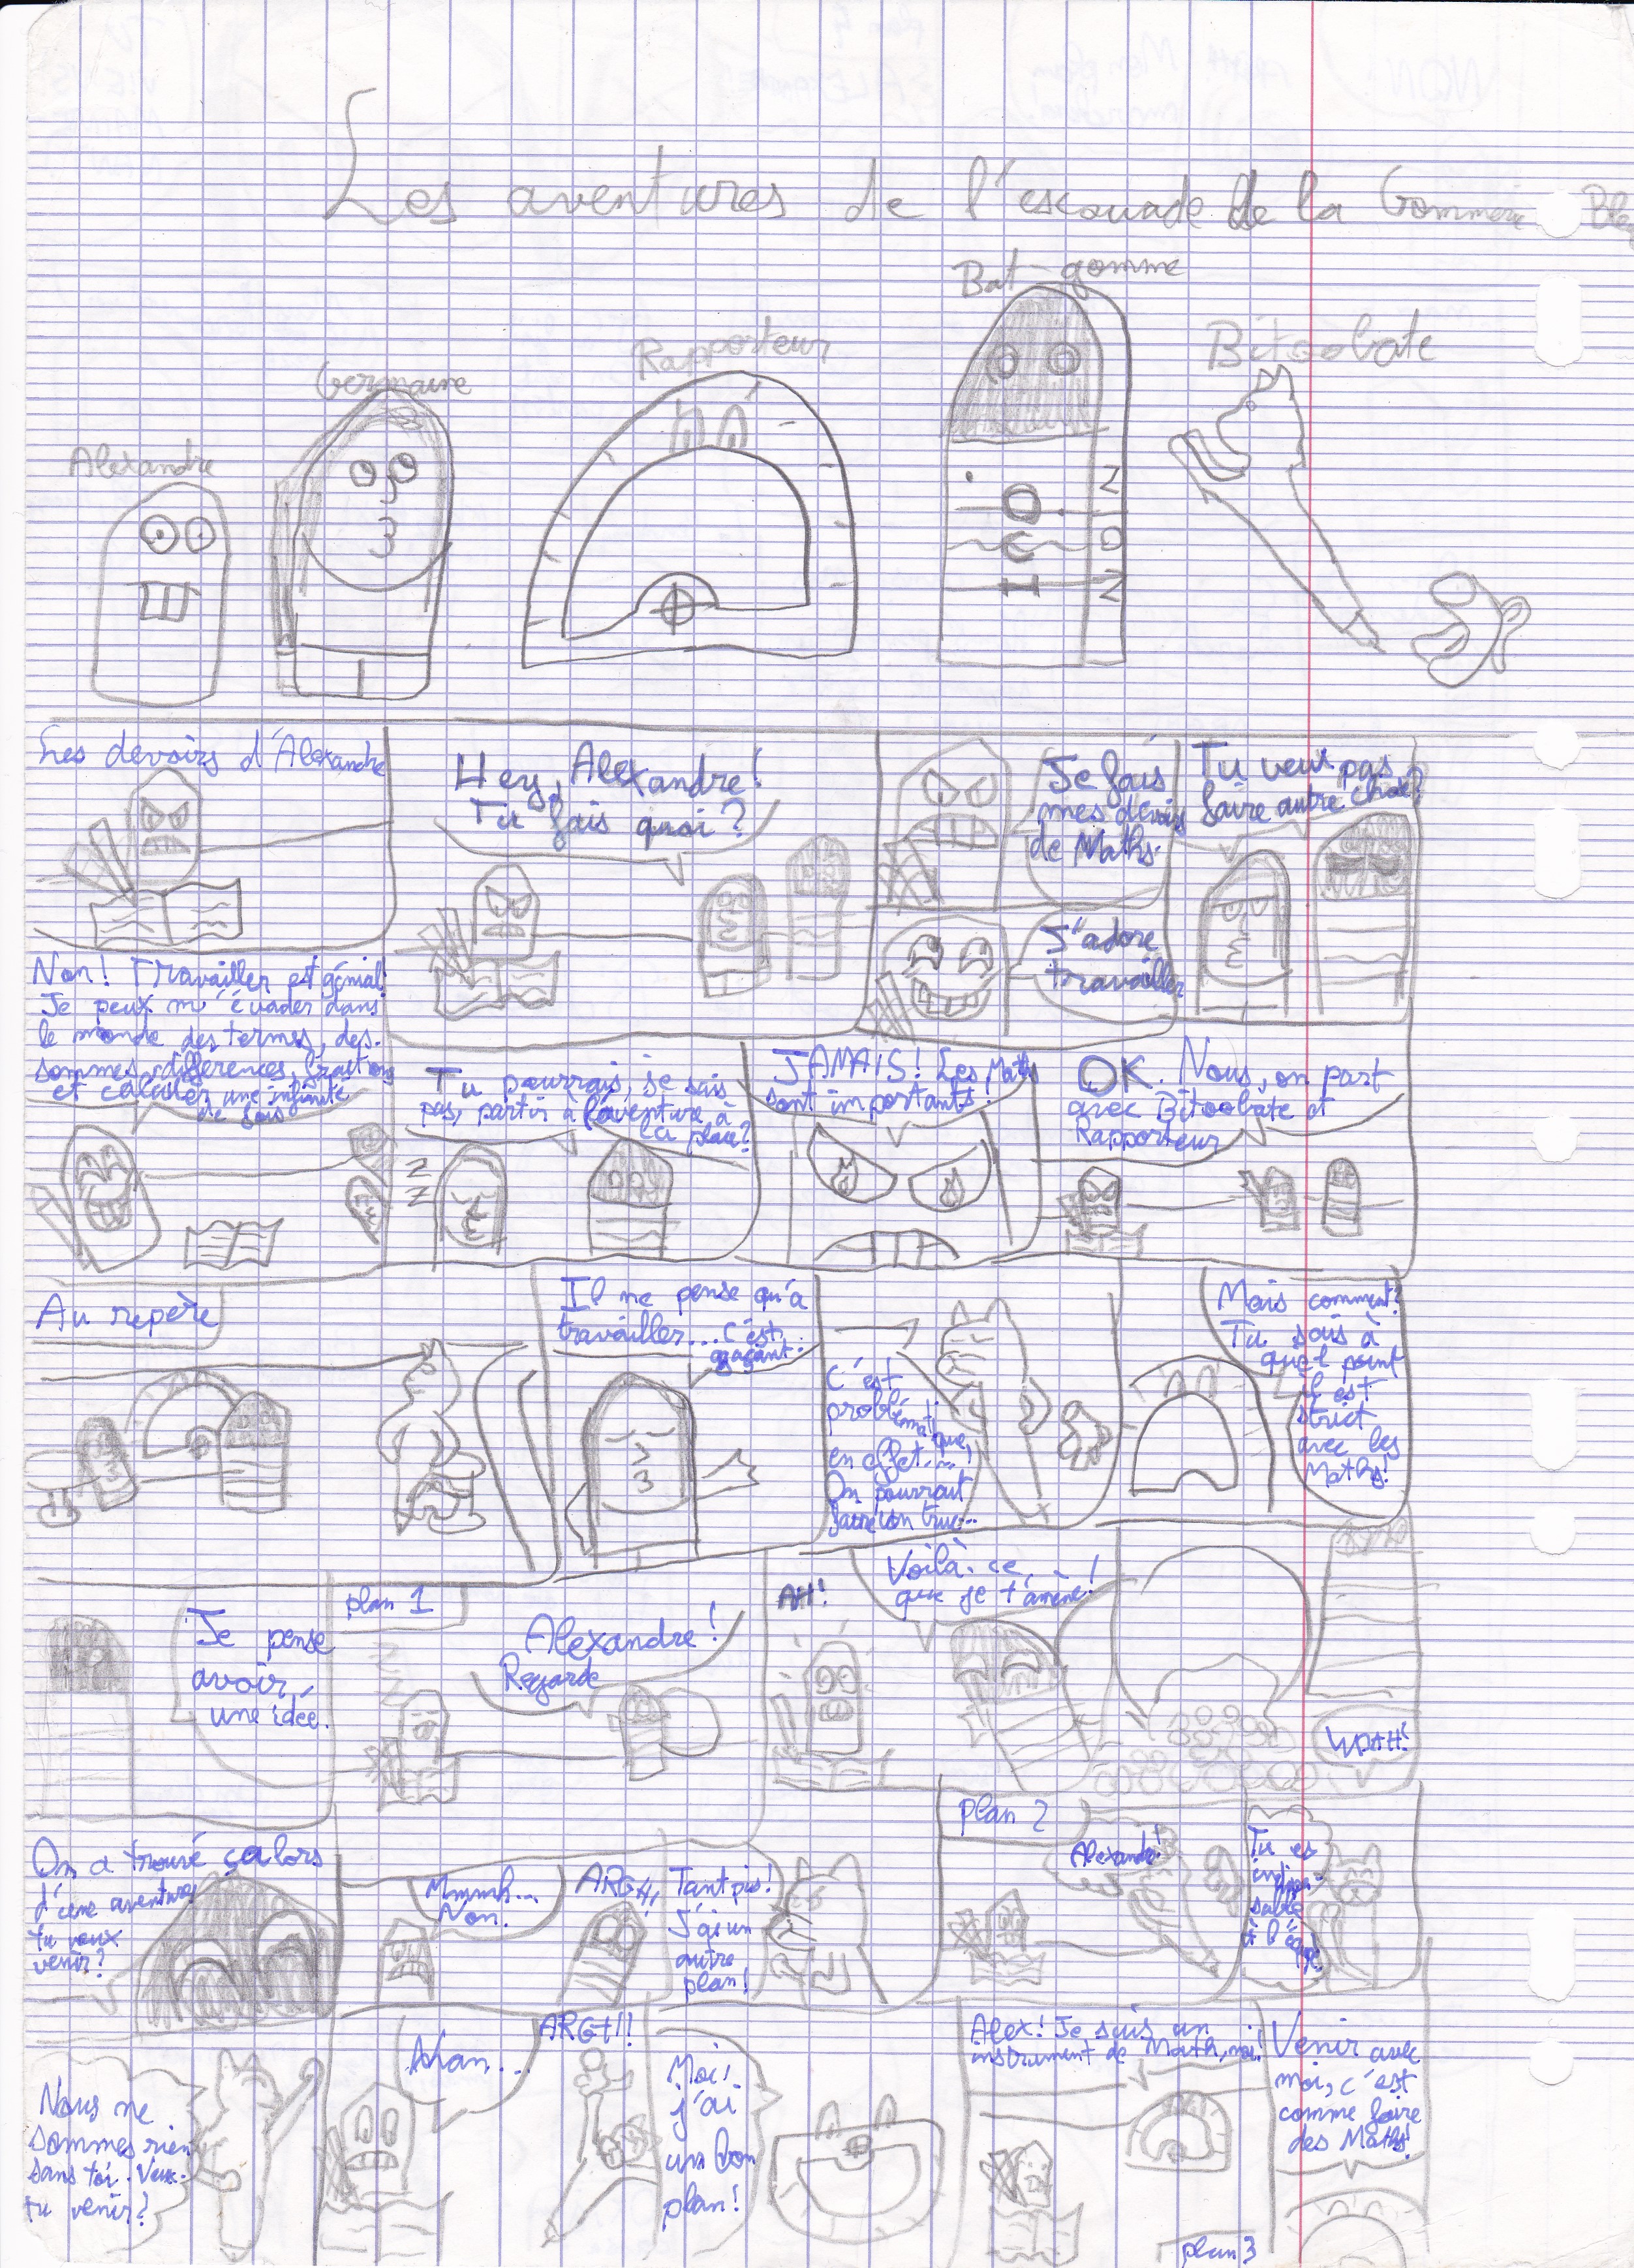 Les aventures de l'escouade de la Gommerie
Alexandre
Germaine
Rapporteur
Bat-gomme
Bitoobate
Les devoirs d'Alexandre
Hey, Alexandre!
Tu fais quoi?
Je fais
mes devoirs
de Maths.
J'adore
travailler
Tu veux pas
faire autre chose?
Non! Travailler est génial!
Je peux m'évader dans
le monde des termes, des
sommes, différences, fractions
et calculer une infinité
de fois
Tu pourrais, je sais
pas, partir à l'aventure à
la place?
Z
Z
JAMAIS! Les Maths
sont importants!
OK. Nous, on part
avec Bitoobate et
Rapporteur
Au repère
Il ne pense qu'à
travailler... c'est
agaçant.
C'est
problémati
que,
en effet...
On pourrait
faire un truc...
Mais comment?
Tu sais à
quel point
il est
strict
avec les
Maths!
Je pense
avoir
une idée.
plan 1
Alexandre!
Regarde
AH!
Voilà ce
que je t'amène!
WOAH!
On a trouvé ça lors
d'une aventure
tu veux
venir?
Mmmh...
Non.
ARGH,
Tant pis!
J'ai un
autre
plan!
plan 2
Alexandre!
Tu es
indispen-
sable
à l'équipe
Nous ne
sommes rien
sans toi. Veux-
tu venir?
Ahan...
ARGH!!
Moi,
j'ai
un bon
plan!
Alex! Je suis un
instrument de Math, moi!
Venir avec
moi, c'est
comme faire
des Maths!
plan 3